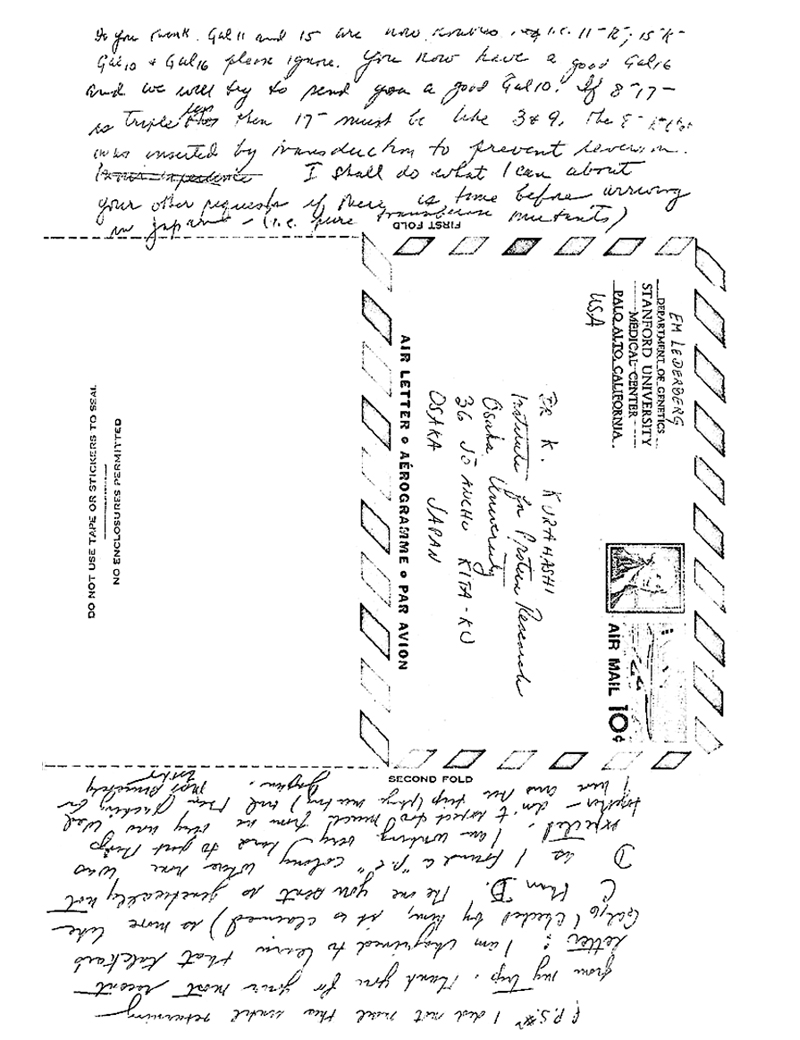 Do you Gal 11 and 15 are now i.e. 11⁻K⁻; 15⁻K⁻
Gal10 & Gal16 please ignore. You now have a good Gal16
and we will try to send you a good Gal10. If 8⁻17⁻
is triple less then 17⁻ must be like 3 & 9. The 8⁻
was inserted by transduction to prevent reversion.
I shall do what I can about
your other requests if there is time before arriving
in Japan - (i.e. pure transferase mutants)
FIRST FOLD
EM LEDERBERG
DEPARTMENT OF GENETICS
STANFORD UNIVERSITY
MEDICAL CENTER
PALO ALTO, CALIFORNIA
USA
AIR MAIL 10¢
DR K. KURAHASHI
Institute for Protein Research
Osaka University
36 JŌANCHO KITA-KU
OSAKA JAPAN
AIR LETTER • AÉROGRAMME • PAR AVION
DO NOT USE TAPE OR STICKERS TO SEAL
NO ENCLOSURES PERMITTED
SECOND FOLD
P.S. I did not mail this until returning
from my trip. Thank you for your most recent
letter: I am chagrined to learn that Kalckar's
Gal10 (checked by him, it is claimed) is more like
C than D. The one you sent is genetically not
D as I found a "p.c" colony where none was
expected. I am working very hard to get things
together - don't expect too much from me
trip (phage meeting) and then packing for
Japan. Most Sincerely
Esther